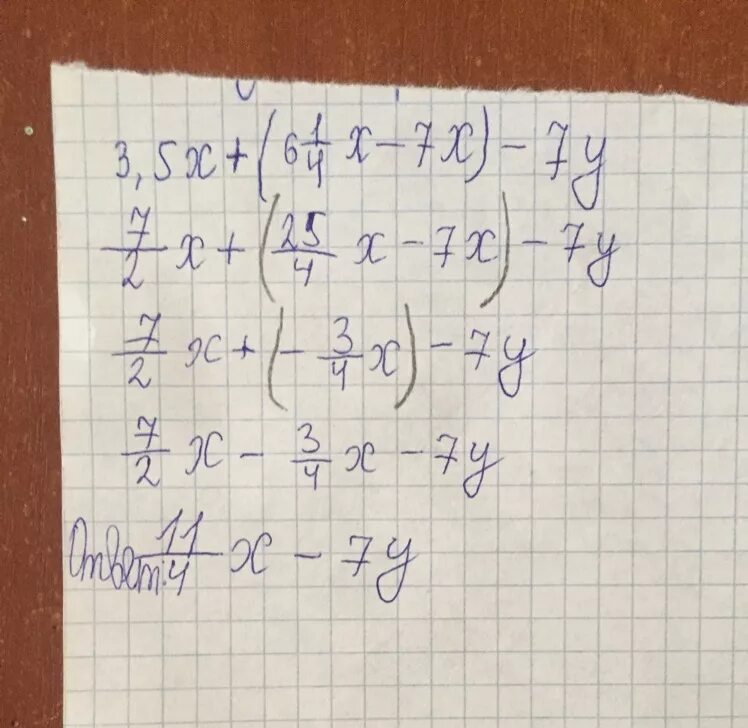 3,5x+(6 1/4 x-7x)-7y
7/2 x+(25/4 x-7x)-7y
7/2 x+(-3/4 x)-7y
7/2 x-3/4 x-7y
Ответ: 11/4 x-7y